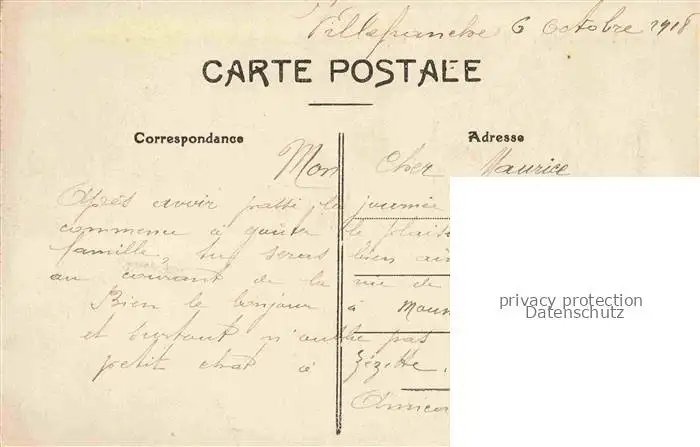 Villefranche 6 Octobre 1918
CARTE POSTALE
Correspondance
Adresse
Mon Cher Maurice
Après avoir passé la journée
commence à goûter le plais
famille, tu seras bien aim
au courant de la vie de
Bien le bonjour à
et surtout n'oublie pas
petit chat à Zézette.
Amica
privacy protection
Datenschutz